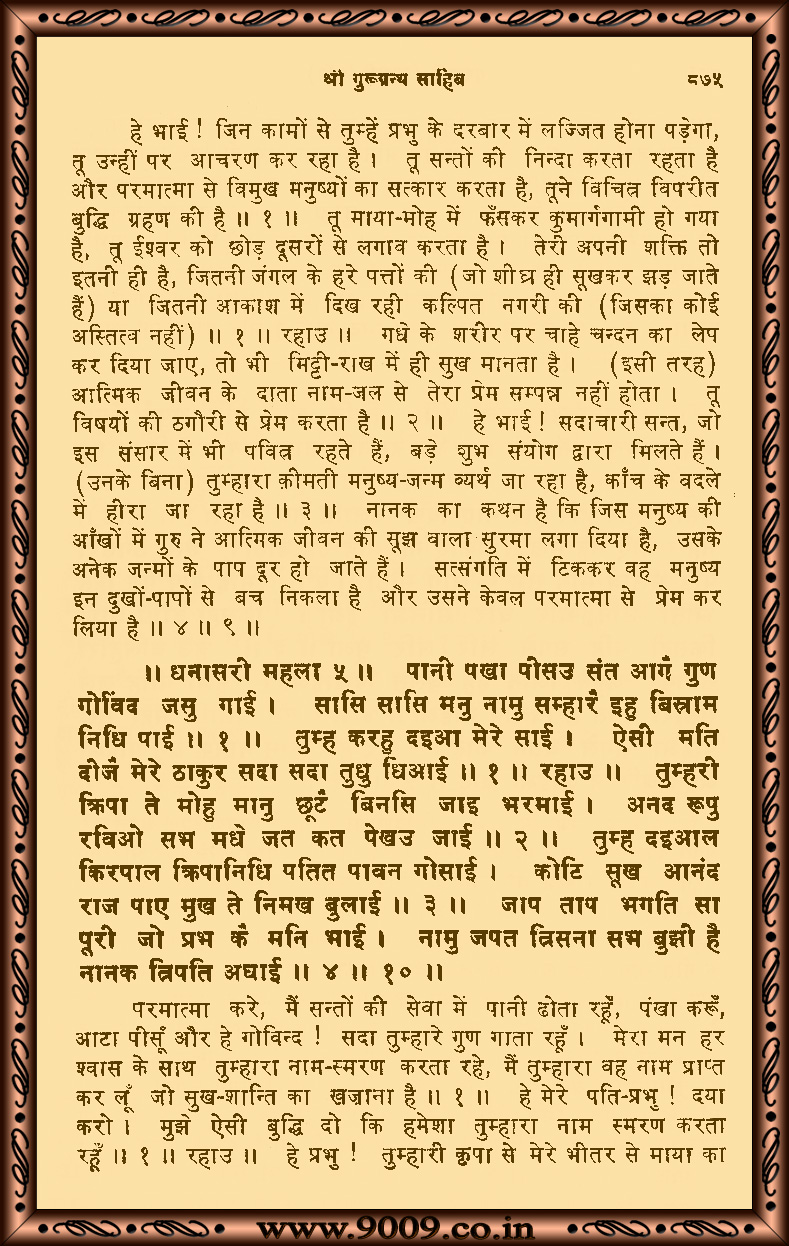 श्री गुरूग्रन्थ साहिब ८७५
हे भाई ! जिन कामों से तुम्हें प्रभु के दरबार में लज्जित होना पड़ेगा,
तू उन्हीं पर आचरण कर रहा है । तू सन्तों की निन्दा करता रहता है
और परमात्मा से विमुख मनुष्यों का सत्कार करता है, तूने विचित्र विपरीत
बुद्धि ग्रहण की है ॥ १ ॥ तू माया-मोह में फँसकर कुमार्गगामी हो गया
है, तू ईश्वर को छोड़ दूसरों से लगाव करता है । तेरी अपनी शक्ति तो
इतनी ही है, जितनी जंगल के हरे पत्तों की (जो शीघ्र ही सूखकर झड़ जाते
हैं) या जितनी आकाश में दिख रही कल्पित नगरी की (जिसका कोई
अस्तित्व नहीं) ॥ १ ॥ रहाउ ॥ गधे के शरीर पर चाहे चन्दन का लेप
कर दिया जाए, तो भी मिट्टी-राख में ही सुख मानता है । (इसी तरह)
आत्मिक जीवन के दाता नाम-जल से तेरा प्रेम सम्पन्न नहीं होता । तू
विषयों की ठगौरी से प्रेम करता है ॥ २ ॥ हे भाई ! सदाचारी सन्त, जो
इस संसार में भी पवित्र रहते हैं, बड़े शुभ संयोग द्वारा मिलते हैं ।
(उनके बिना) तुम्हारा क़ीमती मनुष्य-जन्म व्यर्थ जा रहा है, काँच के बदले
में हीरा जा रहा है ॥ ३ ॥ नानक का कथन है कि जिस मनुष्य की
आँखों में गुरु ने आत्मिक जीवन की सूझ वाला सुरमा लगा दिया है, उसके
अनेक जन्मों के पाप दूर हो जाते हैं । सत्संगति में टिककर वह मनुष्य
इन दुखों-पापों से बच निकला है और उसने केवल परमात्मा से प्रेम कर
लिया है ॥ ४ ॥ ९ ॥
॥ धनासरी महला ५ ॥ पानी पखा पीसउ संत आगै गुण
गोविंद जसु गाई । सासि सासि मनु नामु सम्हारै इहु बिस्राम
निधि पाई ॥ १ ॥ तुम्ह करहु दइआ मेरे साई । ऐसी मति
दीजै मेरे ठाकुर सदा सदा तुधु धिआई ॥ १ ॥ रहाउ ॥ तुम्हरी
क्रिपा ते मोहु मानु छूटै बिनसि जाइ भरमाई । अनद रूपु
रविओ सभ मधे जत कत पेखउ जाई ॥ २ ॥ तुम्ह दइआल
किरपाल क्रिपानिधि पतित पावन गोसाई । कोटि सूख आनंद
राज पाए मुख ते निमख बुलाई ॥ ३ ॥ जाप ताप भगति सा
पूरी जो प्रभ कै मनि भाई । नामु जपत त्रिसना सभ बुझी है
नानक त्रिपति अघाई ॥ ४ ॥ १० ॥
परमात्मा करे, मैं सन्तों की सेवा में पानी ढोता रहूँ, पंखा करूँ,
आटा पीसूँ और हे गोविन्द ! सदा तुम्हारे गुण गाता रहूँ । मेरा मन हर
श्वास के साथ तुम्हारा नाम-स्मरण करता रहे, मैं तुम्हारा वह नाम प्राप्त
कर लूँ जो सुख-शान्ति का खज़ाना है ॥ १ ॥ हे मेरे पति-प्रभु ! दया
करो । मुझे ऐसी बुद्धि दो कि हमेशा तुम्हारा नाम स्मरण करता
रहूँ ॥ १ ॥ रहाउ ॥ हे प्रभु ! तुम्हारी कृपा से मेरे भीतर से माया का
www.9009.co.in